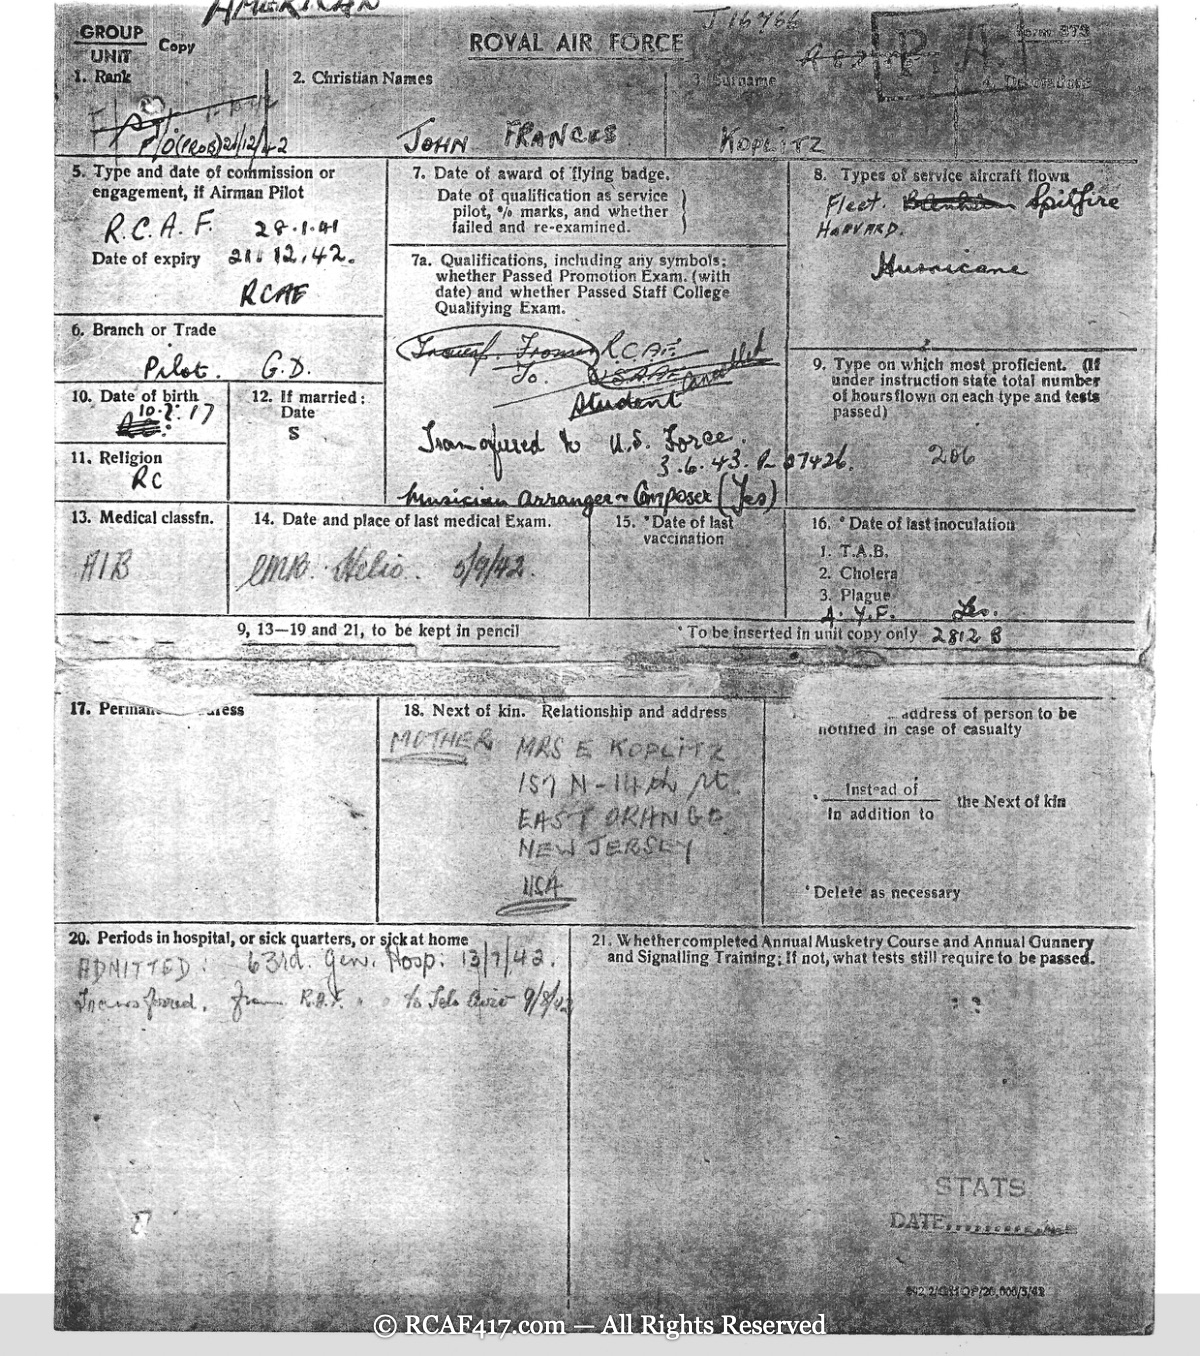 AMERICAN
GROUP
UNIT
Copy
ROYAL AIR FORCE
J 16766
P. A.
Form 373
1. Rank
P/O (PROB) 21/12/42
2. Christian Names
JOHN FRANCES
3. Surname
KOPLITZ
4. Decorations
5. Type and date of commission or
engagement, if Airman Pilot
R.C.A.F. 28.1.41
Date of expiry 21.12.42.
RCAF
6. Branch or Trade
Pilot. G.D.
7. Date of award of flying badge.
Date of qualification as service
pilot, % marks, and whether
failed and re-examined.
7a. Qualifications, including any symbols;
whether Passed Promotion Exam. (with
date) and whether Passed Staff College
Qualifying Exam.
Transf. From R.C.A.F.
To. U.S.A.A.F. Cancelled
Student
Transfured to U.S. Force.
3.6.43. P 27426.
Musician Arranger & Composer (Yes)
8. Types of service aircraft flown
Fleet. Blenheim Spitfire
HARVARD.
Hurricane
9. Type on which most proficient. (If
under instruction state total number
of hours flown on each type and tests
passed)
206
10. Date of birth
10.?.17
11. Religion
RC
12. If married:
Date
S
13. Medical classfn.
A1B
14. Date and place of last medical Exam.
CMB. Helio. 5/9/42.
15. *Date of last
vaccination
16. *Date of last inoculation
1. T.A.B.
2. Cholera
3. Plague
A. Y.F. Yes.
9, 13—19 and 21, to be kept in pencil
*To be inserted in unit copy only 2812 B
17. Perman ress
18. Next of kin. Relationship and address
MOTHER. MRS E KOPLITZ
157 N-14th St.
EAST ORANGE
NEW JERSEY
USA
address of person to be
notified in case of casualty
* Instead of
In addition to
the Next of kin
*Delete as necessary
20. Periods in hospital, or sick quarters, or sick at home
ADMITTED: 63rd. Gen. Hosp: 13/7/42.
Transferred. from to Tel Aviv 9/8/42
21. Whether completed Annual Musketry Course and Annual Gunnery
and Signalling Training; If not, what tests still require to be passed.
STATS
DATE
© RCAF417.com — All Rights Reserved